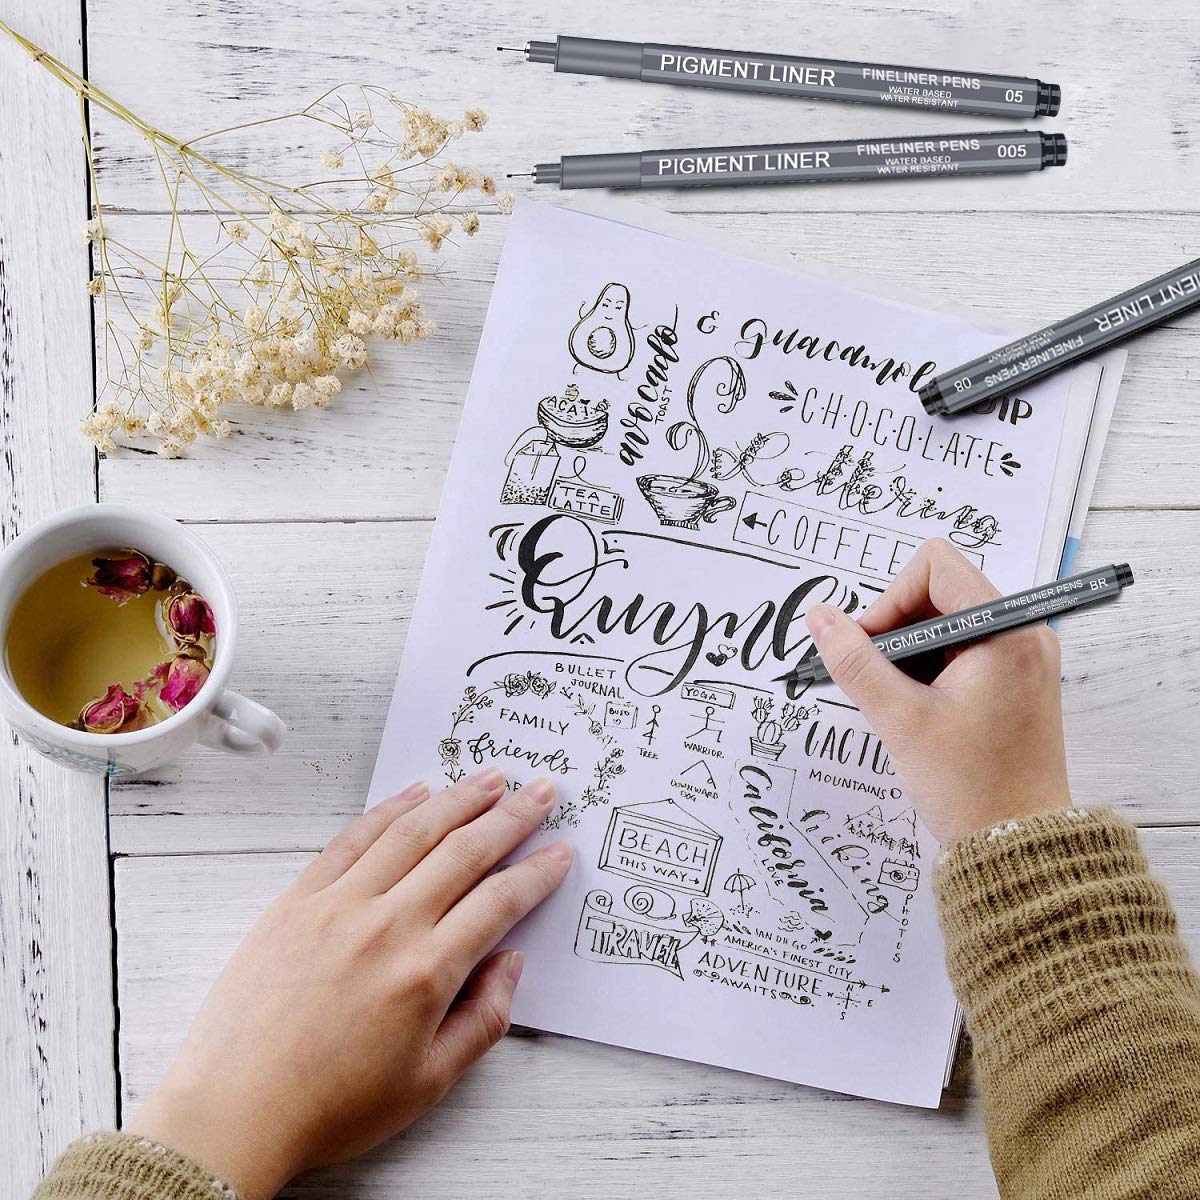 PIGMENT LINER FINELINER PENS
WATER BASED
WATER RESISTANT
05
PIGMENT LINER FINELINER PENS
WATER BASED
WATER RESISTANT
005
MENT LINER
FINELINER PENS
08
& Guacamol
DIP
avocado
TOAST
ACAI
CHOCOLATE
lettering
TEA
LATTE
COFFEE
Quynh
PIGMENT LINER FINELINER PENS
WATER BASED
WATER RESISTANT
BR
BULLET
JOURNAL
FAMILY
friends
BUJO
YOGA
TREE
WARRIOR
DOWNWARD
DOG
CACTUS
MOUNTAINS
California
LOVE
hiking
PHOTOS
BEACH
THIS WAY→
@
TRAVEL
SAN DIEGO
AMERICA'S FINEST CITY
ADVENTURE
AWAITS
N
W E
S